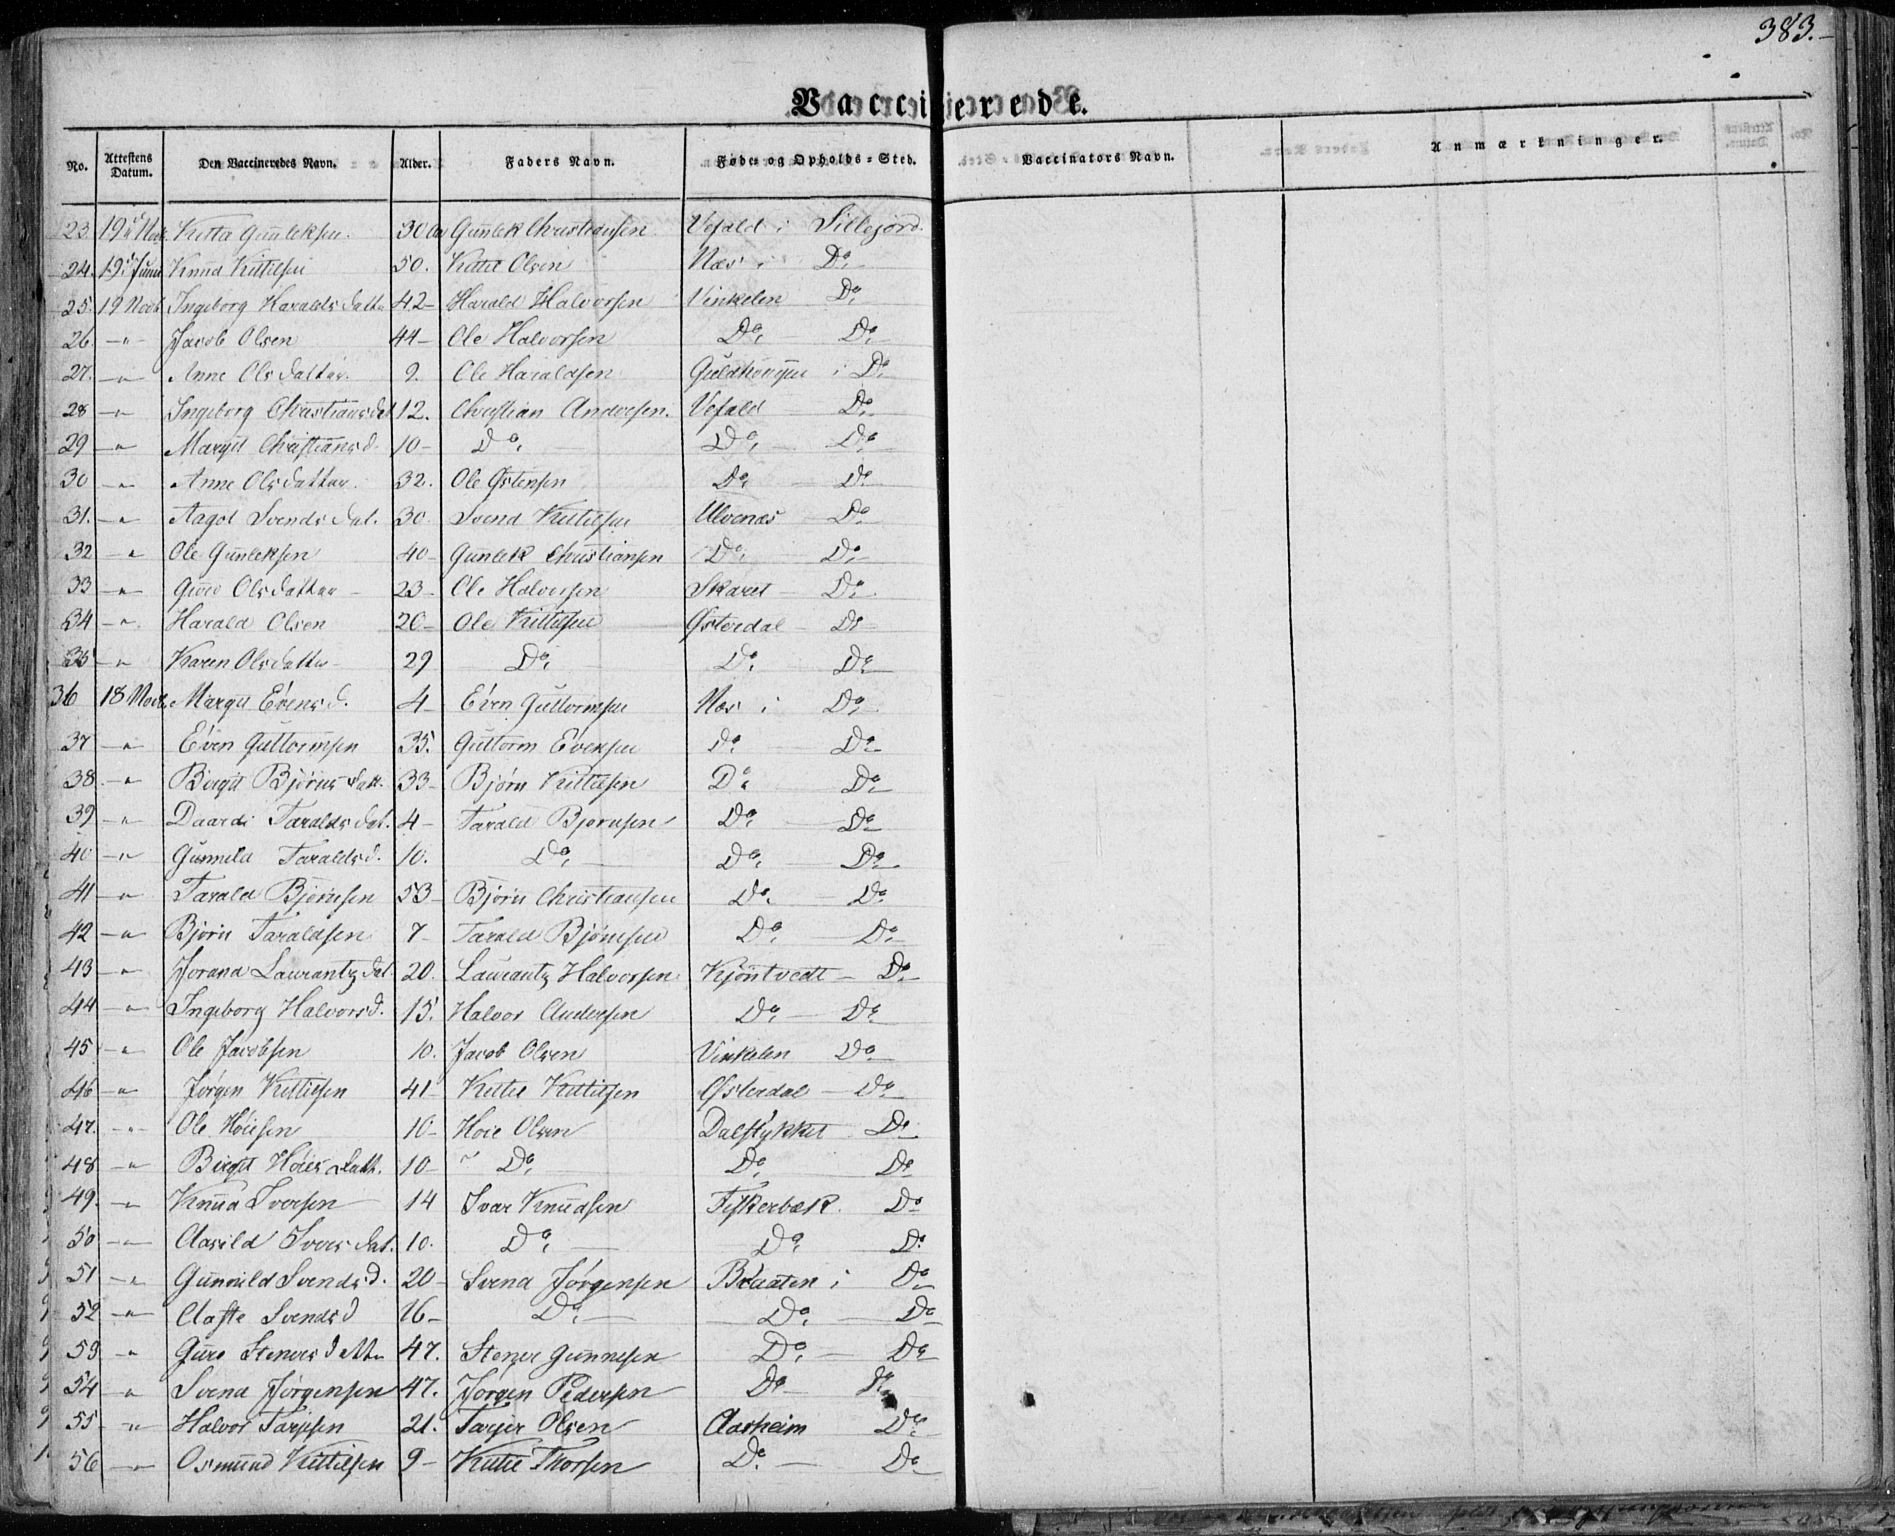 383.
Vaccinerede.
No. Attestens Datum. Den Vaccineredes Navn. Alder. Faders Navn. Føde- og Opholds-Sted. Vaccinators Navn. Anmærkninger.
23. 19 Gunleksen. 30 Gunlek Christiansen Vefald i Sillejord.
24. 19 Knud Kittilsen 50. Kittil Olsen Næs i Do.
25. 19 Novb Ingeborg Haralds datter 42- Harald Halvorsen Vinkelen Do.
26. -"- Jacob Olsen 44- Ole Halvorsen Do. Do.
27. -"- Anne Olsdatter. 9. Ole Haraldsen i Do.
28 -"- Ingeborg Christiansdat 12. Christian Andersen. Vefald Do.
29 -"- Margit Christiansd. 10- Do. Do. Do.
30 -"- Anne Olsdatter. 32. Ole Østensen Do. Do.
31. -"- Aagot Svends dat. 30. Svend Kittilsen Ulvenæs Do.
32 -"- Ole Gunleksen 40- Gunlek Christiansen Do. Do.
33 -"- Olsdatter 23- Ole Halvorsen Skaret Do.
34 -"- Harald Olsen 20- Ole Kittilsen Østerdal Do
35 -"- Karen Olsdatter 29 Do. Do. Do.
36 18 Novb. Margit Evensd. 4- Even Guttormsen Næs i Do.
37 -"- Even Guttormsen 35. Guttorm Evensen Do. Do.
38 -"- Birgit Bjørns datt. 33- Bjørn Kittilsen Do. Do.
39 -"- Daardi Taralds dat. 4- Tarald Bjørnsen Do. Do.
40 -"- Gunnild Taraldsd. 10. Do. Do. Do.
41 -"- Tarald Bjørnsen 53- Bjørn Christiansen Do. Do.
42 -"- Bjørn Taraldsen 7- Tarald Bjørnsen Do. Do.
43 -"- Jorand Laurantz dat 20. Laurantz Halvorsen Kjøntvedt Do.
44 -"- Ingeborg Halvorsd. 15. Halvor Andersen Do. Do.
45 -"- Ole Jacobsen 10. Jacob Olsen Vinkelen Do.
46 -"- Jørgen Kittilsen 41- Kittil Kittilsen Østerdal Do.
47. -"- Ole Høiesen 10- Høie Olsen Dalstykket Do.
48 -"- Birgit Høies datt. 10- Do. Do. Do.
49. -"- Knud Iversen 14 Ivar Knudsen Fiskerbæk. Do.
50 -"- Aasild Ivers dat. 10. Do. Do. Do.
51 -"- Gunnild Svendsd. 20- Svend Jørgensen Braaten i Do.
52 -"- Aaste Svendsd 16- Do. Do. Do.
53 -"- Guro Steners datter 47. Stener Gunnesen Do. Do.
54 -"- Svend Jørgensen 47. Jørgen Pedersen Do. Do.
55 -"- Halvor Tarjesen 21. Tarjer Olsen Aasheim Do.
56 -"- Osmund Kittilsen 9- Kittil Thorsen Do. Do.